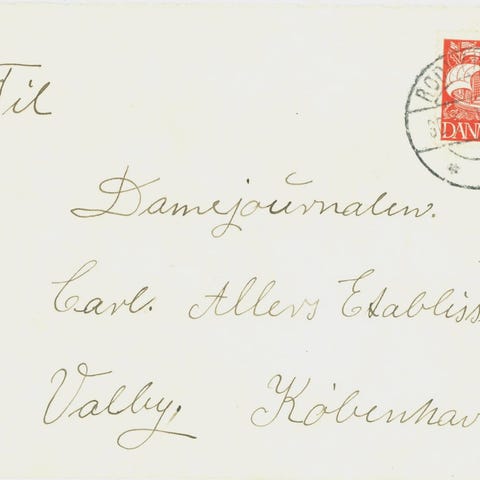 Til
DAN
Damejournalen.
Carl. Allers Etabliss
Valby. Københav